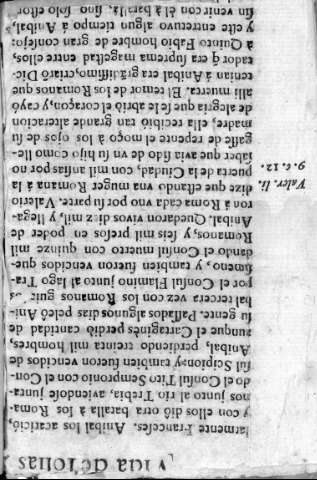 Vida de Ionas
larmente Franceses. Anibal los acarició,
y con ellos dió otra batalla à los Roma-
nos junto al rio Trebia, aviendose junta-
do el Consul Tito Sempronio con el Con-
sul Scipion, y tambien fueron vencidos de
Anibal, perdiendo treinta mil hombres,
aunque el Cartaginès perdiò cantidad de
su gente. Passados algunos dias peleò Ani-
bal tercera vez con los Romanos
por el Consul Flaminio junto al lago Tra-
simeno, y tambien fueron vencidos que-
dando el Consul muerto con quinze mil
Romanos, y seis mil presos en poder de
Anibal. Quedaron vivos diez mil, y llega-
ron à Roma cada vno por su parte. Valerio
dize que estando vna muger Romana à la
puerta de la Ciudad, con mil ansias por no
saber que avia sido de vn su hijo como lle-
gasse de repente el moço à los ojos de su
madre, ella recibiò tan grande alteracion
de alegria que se le abriò el coraçon, y cayò
alli muerta. El temor de los Romanos que
tenian à Anibal era grãdissimo, criarõ Dic-
tador q̃ era suprema magestad entre ellos,
à Quinto Fabio hombre de gran consejo:
y este entretuvo algun tiempo à Anibal,
sin venir con èl à batalla, sino solo estor-
Valer. li.
9. c. 12.